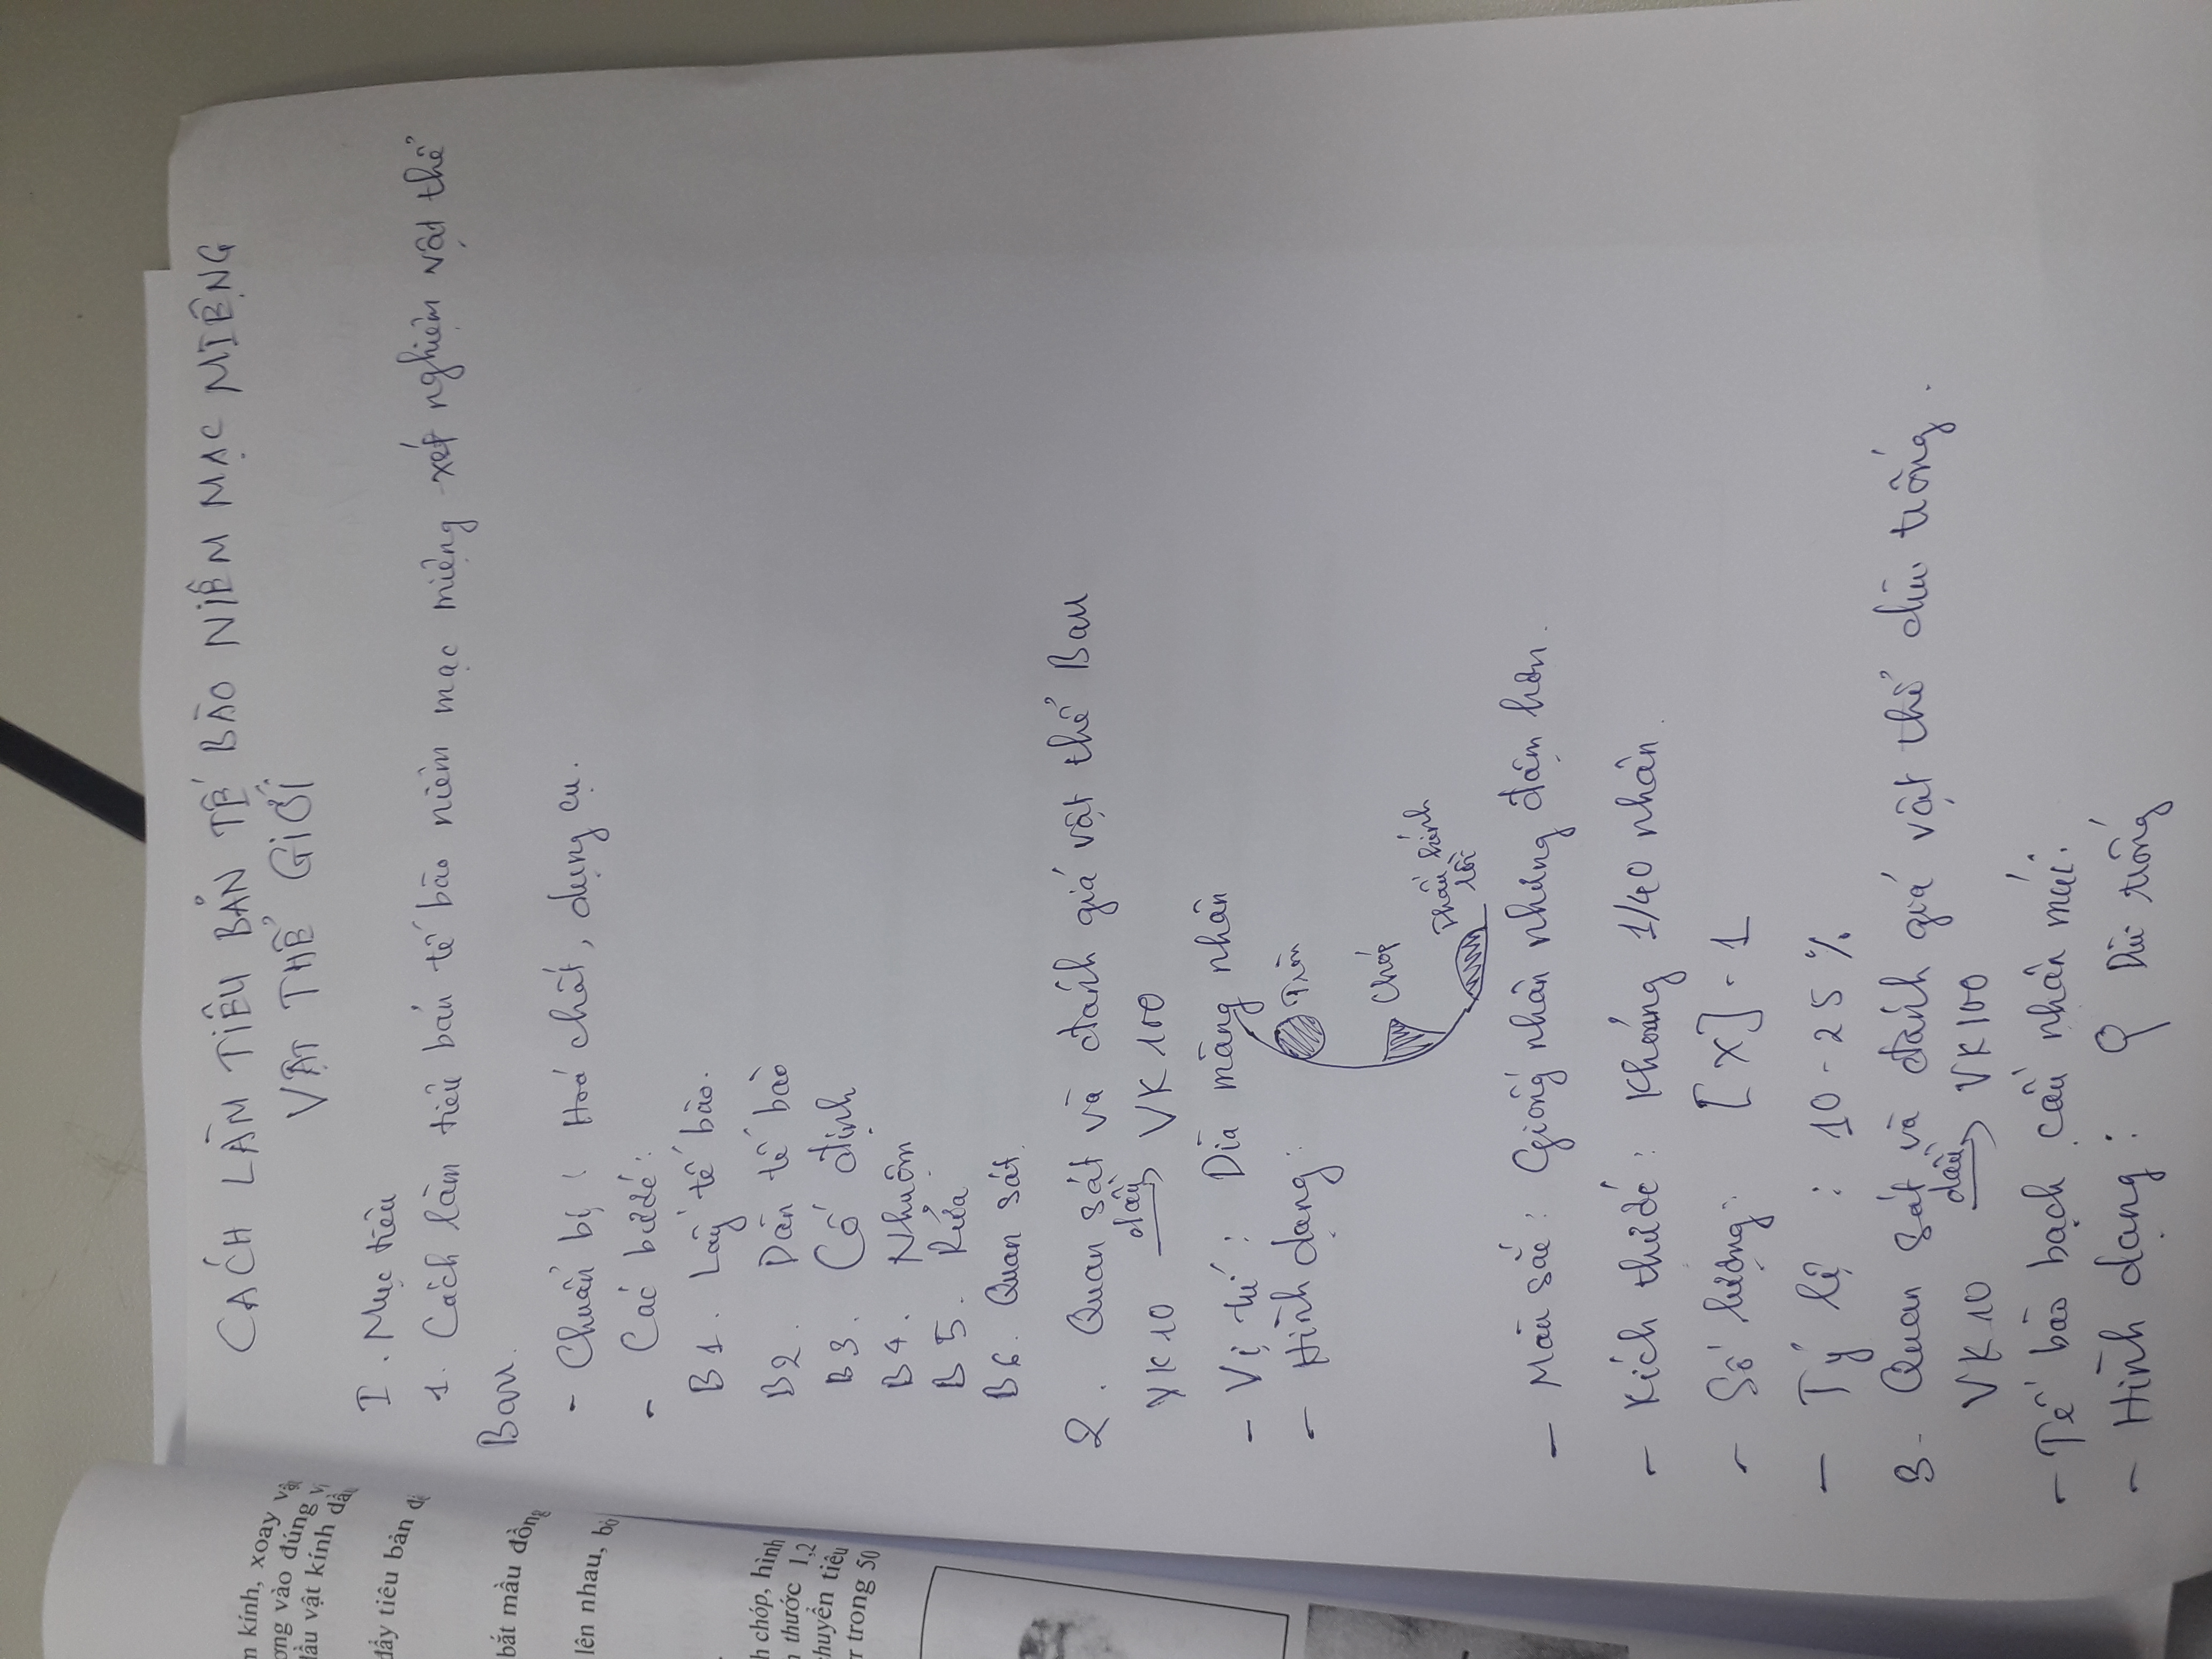 m kính, xoay vậ
ơng vào đúng v
dầu vật kính dầu
đẩy tiêu bản để
bắt mầu đồng
lên nhau, bỏ
h chóp, hình
thước 1,2
chuyển tiêu
r trong 50
CÁCH LÀM TIÊU BẢN TẾ BÀO NIÊM MẠC MIỆNG
VẬT THỂ GIỚI
I. Mục tiêu
1. Cách làm tiêu bản tế bào niêm mạc miệng xét nghiệm vật thể
Barr.
- Chuẩn bị: Hoá chất, dụng cụ.
- Các bước:
B1. Lấy tế bào.
B2. Dàn tế bào
B3. Cố định
B4. Nhuộm
B5. Rửa
B6. Quan sát.
2. Quan sát và đánh giá vật thể Barr
dầu
VK10 → VK100
- Vị trí: Dìa màng nhân
- Hình dạng: Tròn
Chóp
Thấu kính
lồi
- Màu sắc: Giống nhân nhưng đậm hơn.
- Kích thước: Khoảng 1/40 nhân.
- Số lượng: [X] - 1
- Tỷ lệ: 10-25%
3. Quan sát và đánh giá vật thể dùi trống.
dầu
VK10 → VK100
- Tế bào bạch cầu nhân múi:
- Hình dạng: Dùi trống